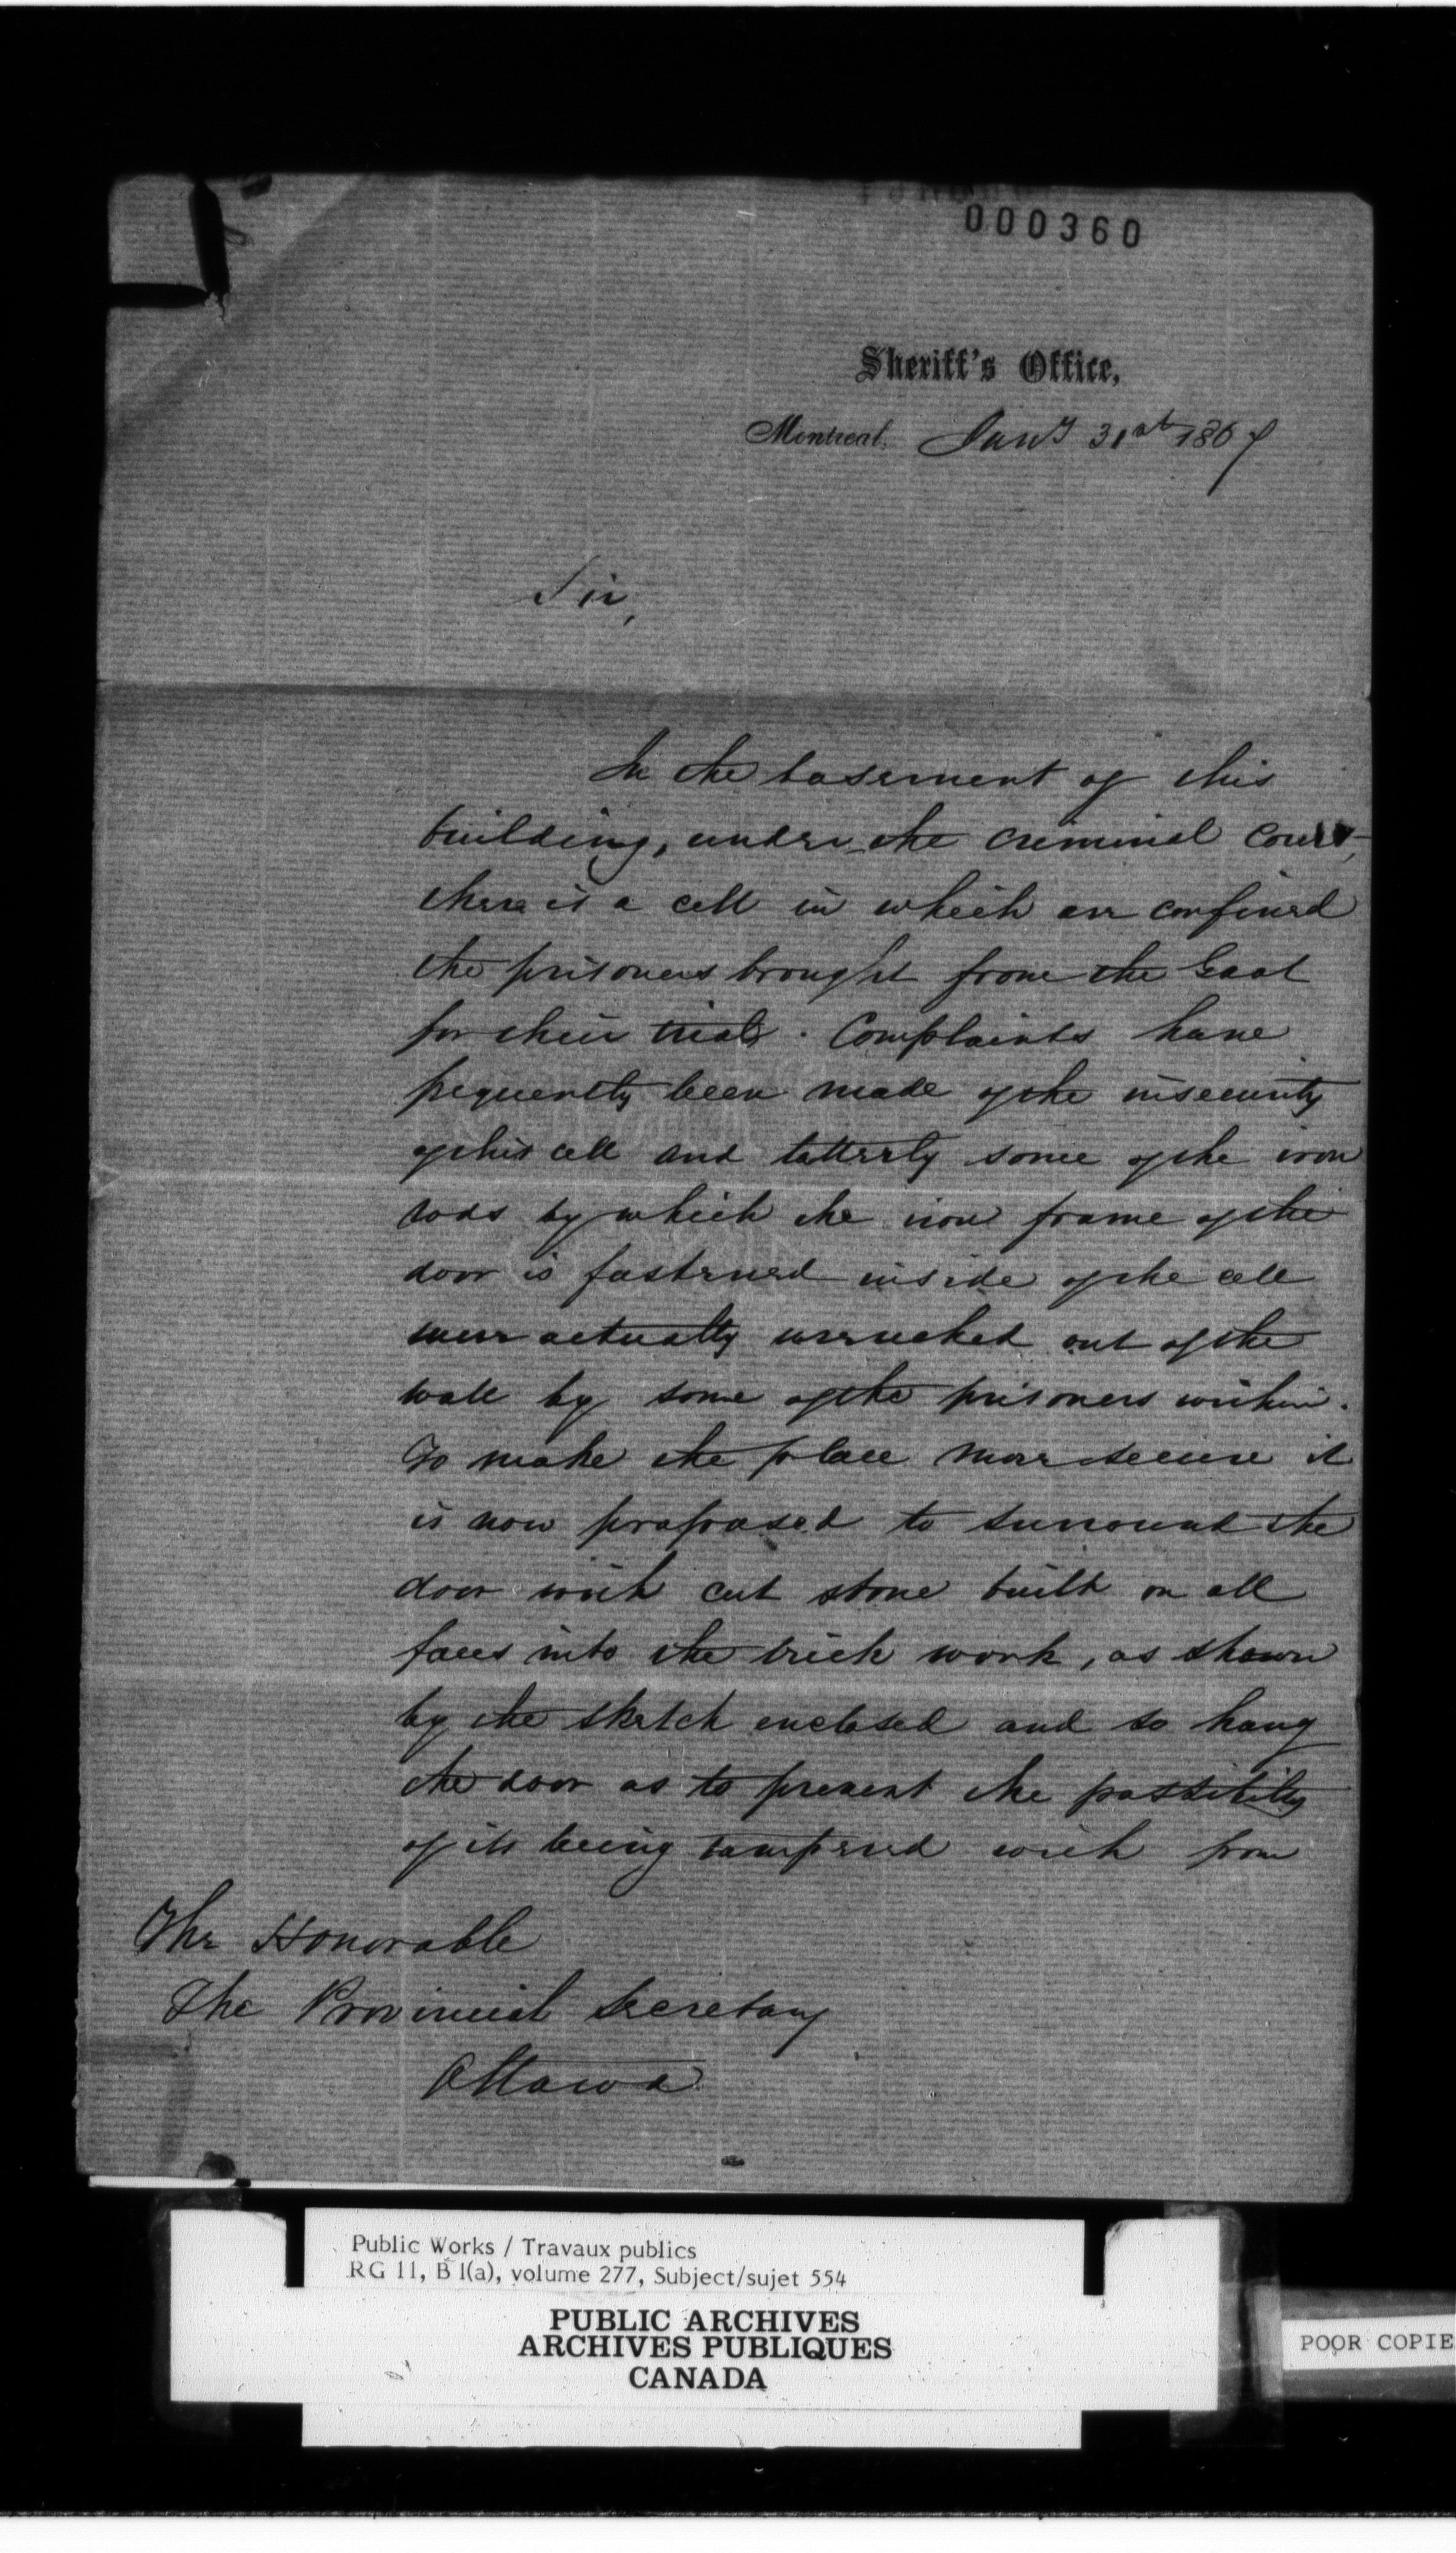 000360
Sheriff's Office,
Montreal. Jany 31st 1867
Sir,
In the basement of this
building, under the criminal Court,
there is a cell in which are confined
the prisoners brought from the Gaol
for their trials. Complaints have
frequently been made of the insecurity
of this cell and latterly some of the iron
rods by which the iron frame of the
door is fastened inside of the cell
were actually wrenched out of the
wall by some of the prisoners within.
To make the place more secure it
is now proposed to surround the
door with cut stone built on all
faces into the brick work, as shown
by the sketch enclosed and so hang
the door as to prevent the possibility
of its being tampered with from
The Honorable
The Provincial Secretary
Ottawa
Public Works / Travaux publics
RG 11, B 1(a), volume 277, Subject/sujet 554
PUBLIC ARCHIVES
ARCHIVES PUBLIQUES
CANADA
POOR COPIE